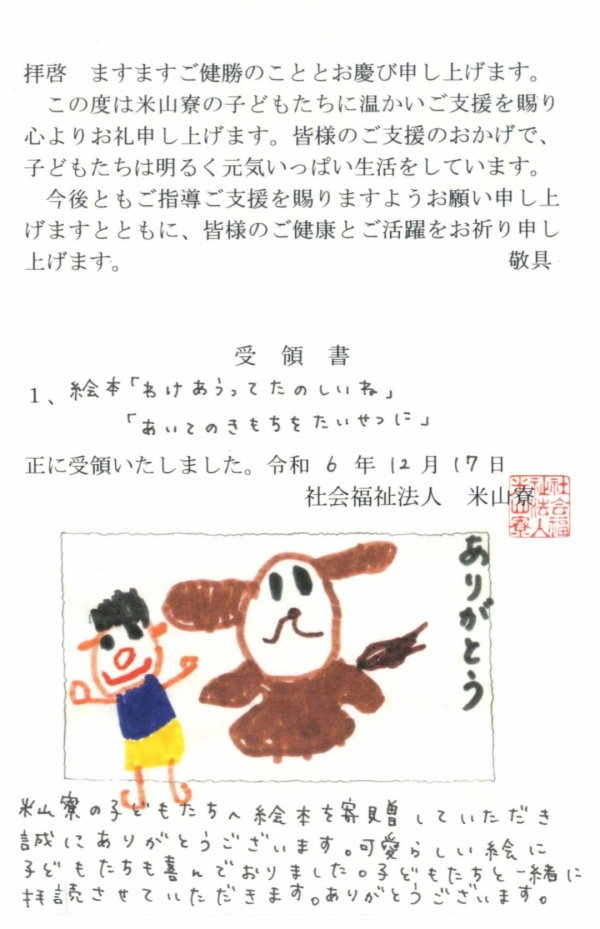 拝啓　ますますご健勝のこととお慶び申し上げます。
　この度は米山寮の子どもたちに温かいご支援を賜り
心よりお礼申し上げます。皆様のご支援のおかげで、
子どもたちは明るく元気いっぱい生活をしています。
　今後ともご指導ご支援を賜りますようお願い申し上
げますとともに、皆様のご健康とご活躍をお祈り申し
上げます。　敬具
受　領　書
１、絵本「わけあうってたのしいね」
「あいてのきもちをたいせつに」
正に受領いたしました。令和 6 年 12 月 17 日
社会福祉法人　米山寮
社会福
祉法人
米山寮
ありがとう
米山寮の子どもたちへ絵本を寄贈していただき
誠にありがとうございます。可愛らしい絵に
子どもたちも喜んでおりました。子どもたちと一緒に
拝読させていただきます。ありがとうございます。